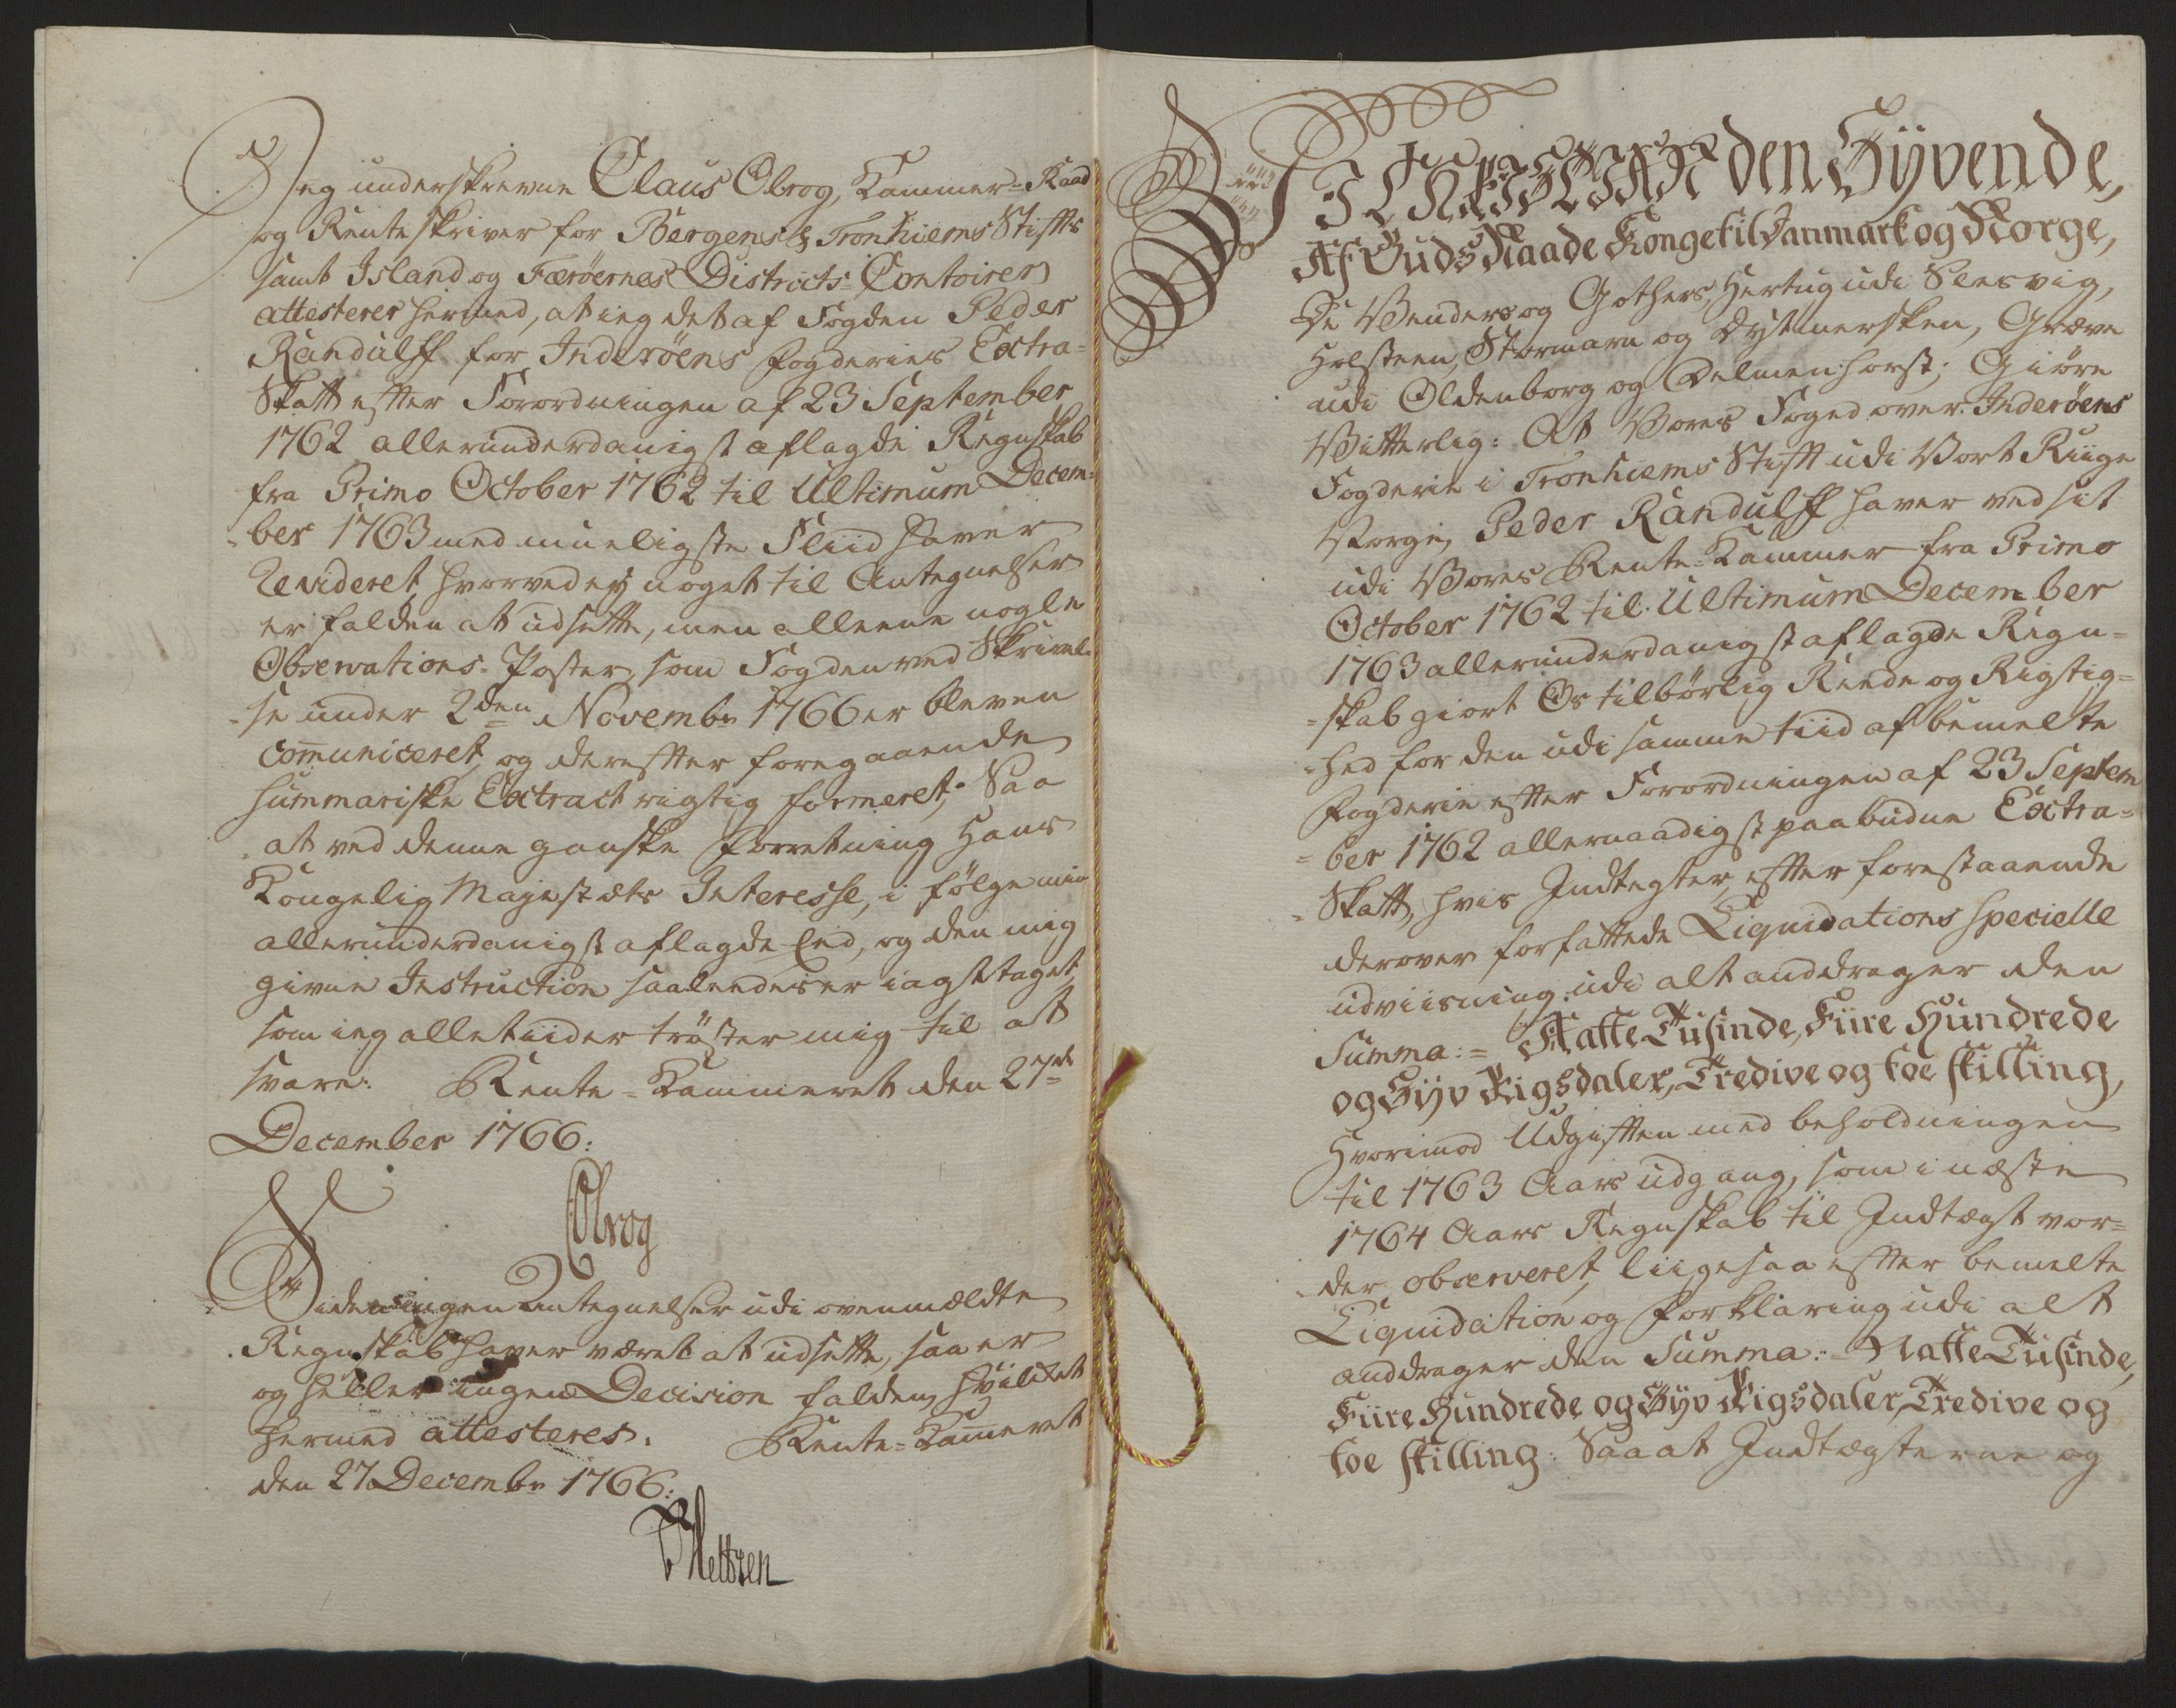 Jeg underskrevne Claus Olrog, Kammer-Raad
og Renteskriver for Bergens & Tronhiems Stiffts
samt Island og Færöernes Districts-Contoirer
attesterer hermed, at jeg det af Fogden Peder
Randulff for Inderöens Fogderies Extra-
Skatt efter Forordningen af 23 September
1762 allerunderdanigst aflagde Regnskab
fra Primo October 1762 til Ultimum Decem-
ber 1763 med mueligste Fliid haver
Revideret, hvorved ey noget til Antegnelser
er falden at udsette, men alleene nogle
Observations-Poster, som Fogden ved Skrivel-
se under 2den Novembr 1766 er bleven
Communiceret, og derefter foregaaende
summariske Extract rigtig formeret; Saa
at ved denne ganske Forretning Hans
Kongelig Majestæts Interesse, i fölge min
allerunderdanigst aflagde Eed, og den mig
givne Instruction saaledes er iagttaget
som jeg alletiider tröster mig til at
svare. Rente-Kammeret den 27de
December 1766:
COlrog
Siden ingen Antegnelser udi ovenmældte
Regnskab haver været at udsette, saa er
og heller ingen Decision falden, hvilcket
hermed attesteres. Rente-Kammeret
den 27 Decembr 1766:
CHRISTIAN den Syvende,
Af Guds Naade Konge til Danmark og Norge,
De Venders og Gothers, Hertug udi Slesvig,
Holsteen, Stormarn og Dytmersken, Græve
udi Oldenborg og Delmenhorst; Giöre
Vitterlig: At Vores Foged over Inderöens
Fogderie i Tronhiems Stifft udi Vort Riige
Norge, Peder Randulff haver ved sit
udi Vores Rente-Kammer fra Primo
October 1762 til Ultimum December
1763 allerunderdanigst aflagde Regn-
skab giort Os tilbörlig Reede og Rigtig-
hed for den udi samme tiid af bemelte
Fogderie efter Forordningen af 23 Septem
ber 1762 allernaadigst paabudne Extra-
Skatt, hvis Indtegter, efter forestaaende
derover forfattede Liquidations specielle
udviisning, udi alt anddrager den
Summa:= Otte Tusinde, Fiire Hundrede
og Syv Rigsdaler, Tredive og toe skilling,
Hvorimod Udgiften med beholdningen
til 1763 Aars udgang, som i næste
1764 Aars Regnskab til Indtægt vor-
der observeret, liigesaa efter bemelte
Liquidation og Forklaring udi alt
anddrager den Summa:= Otte Tusinde,
Fiire Hundrede og Syv Rigsdaler, Tredive og
toe skilling: Saa at Indtægterne og